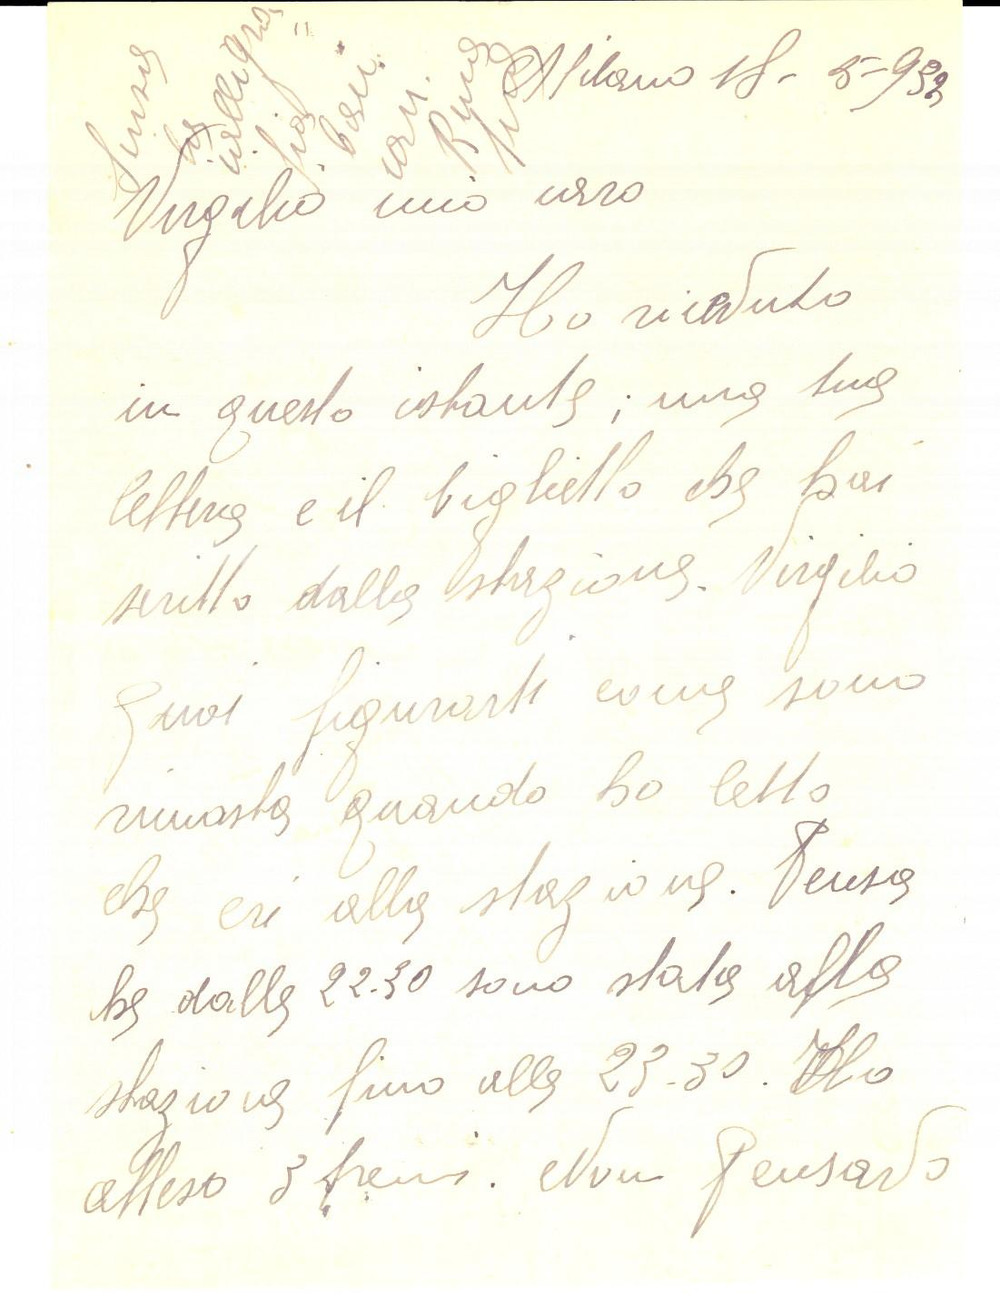 Scusa
la
calligra
fia
baci
cari
Milano 18-5-932
Virgilio mio caro
Ho riceduto
in questo istante; una tua
lettera e il biglietto che hai
scritto dalla stazione. Virgilio
puoi figurarti come sono
rimasta quando ho letto
che eri alla stazione. Pensa
he dalle 22.30 sono stata alla
stazione fino alle 23-30. Ho
atteso 3 treni. Non Pensavo